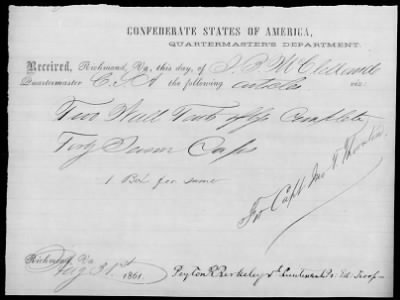 CONFEDERATE STATES OF AMERICA,
QUARTERMASTER'S DEPARTMENT.
Received, Richmond, Va, this day, of J. B. McClelland
Quartermaster C.S.A the following articles viz:
Two Wall Tents & flys Complete
Caps
1 Box for same
For Capt Jno T Thornton
Richmond, Va
Aug 31st 1861.
Peyton R Berkeley Lieutenant Pr. Ed. Troop